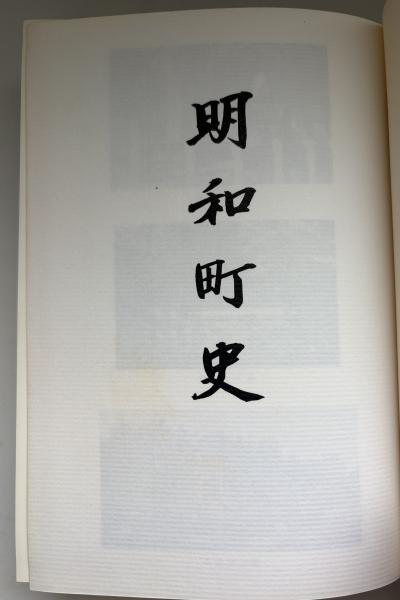 明和町史